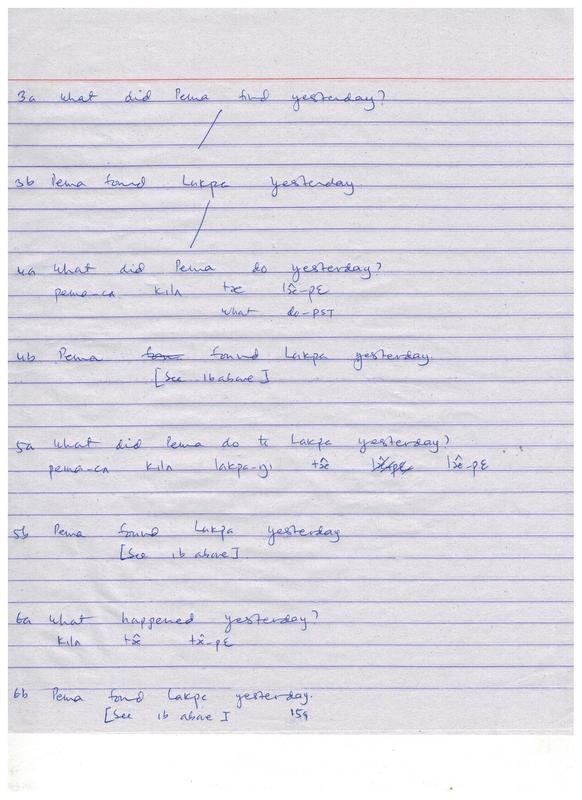 3a What did Pema find yesterday?
3b Pema found Lakpa yesterday
4a What did Pema do yesterday?
pema-ca kiln tɕe lŝe-pɛ
what do-PST
4b Pema found Lakpa yesterday.
[See 1b above]
5a What did Pema do to Lakpa yesterday?
pema-ca kiln lakpa-gi
5b Pema found Lakpa yesterday
[See 1b above]
6a What happened yesterday?
kiln
6b Pema found Lakpa yesterday.
[See 1b above]